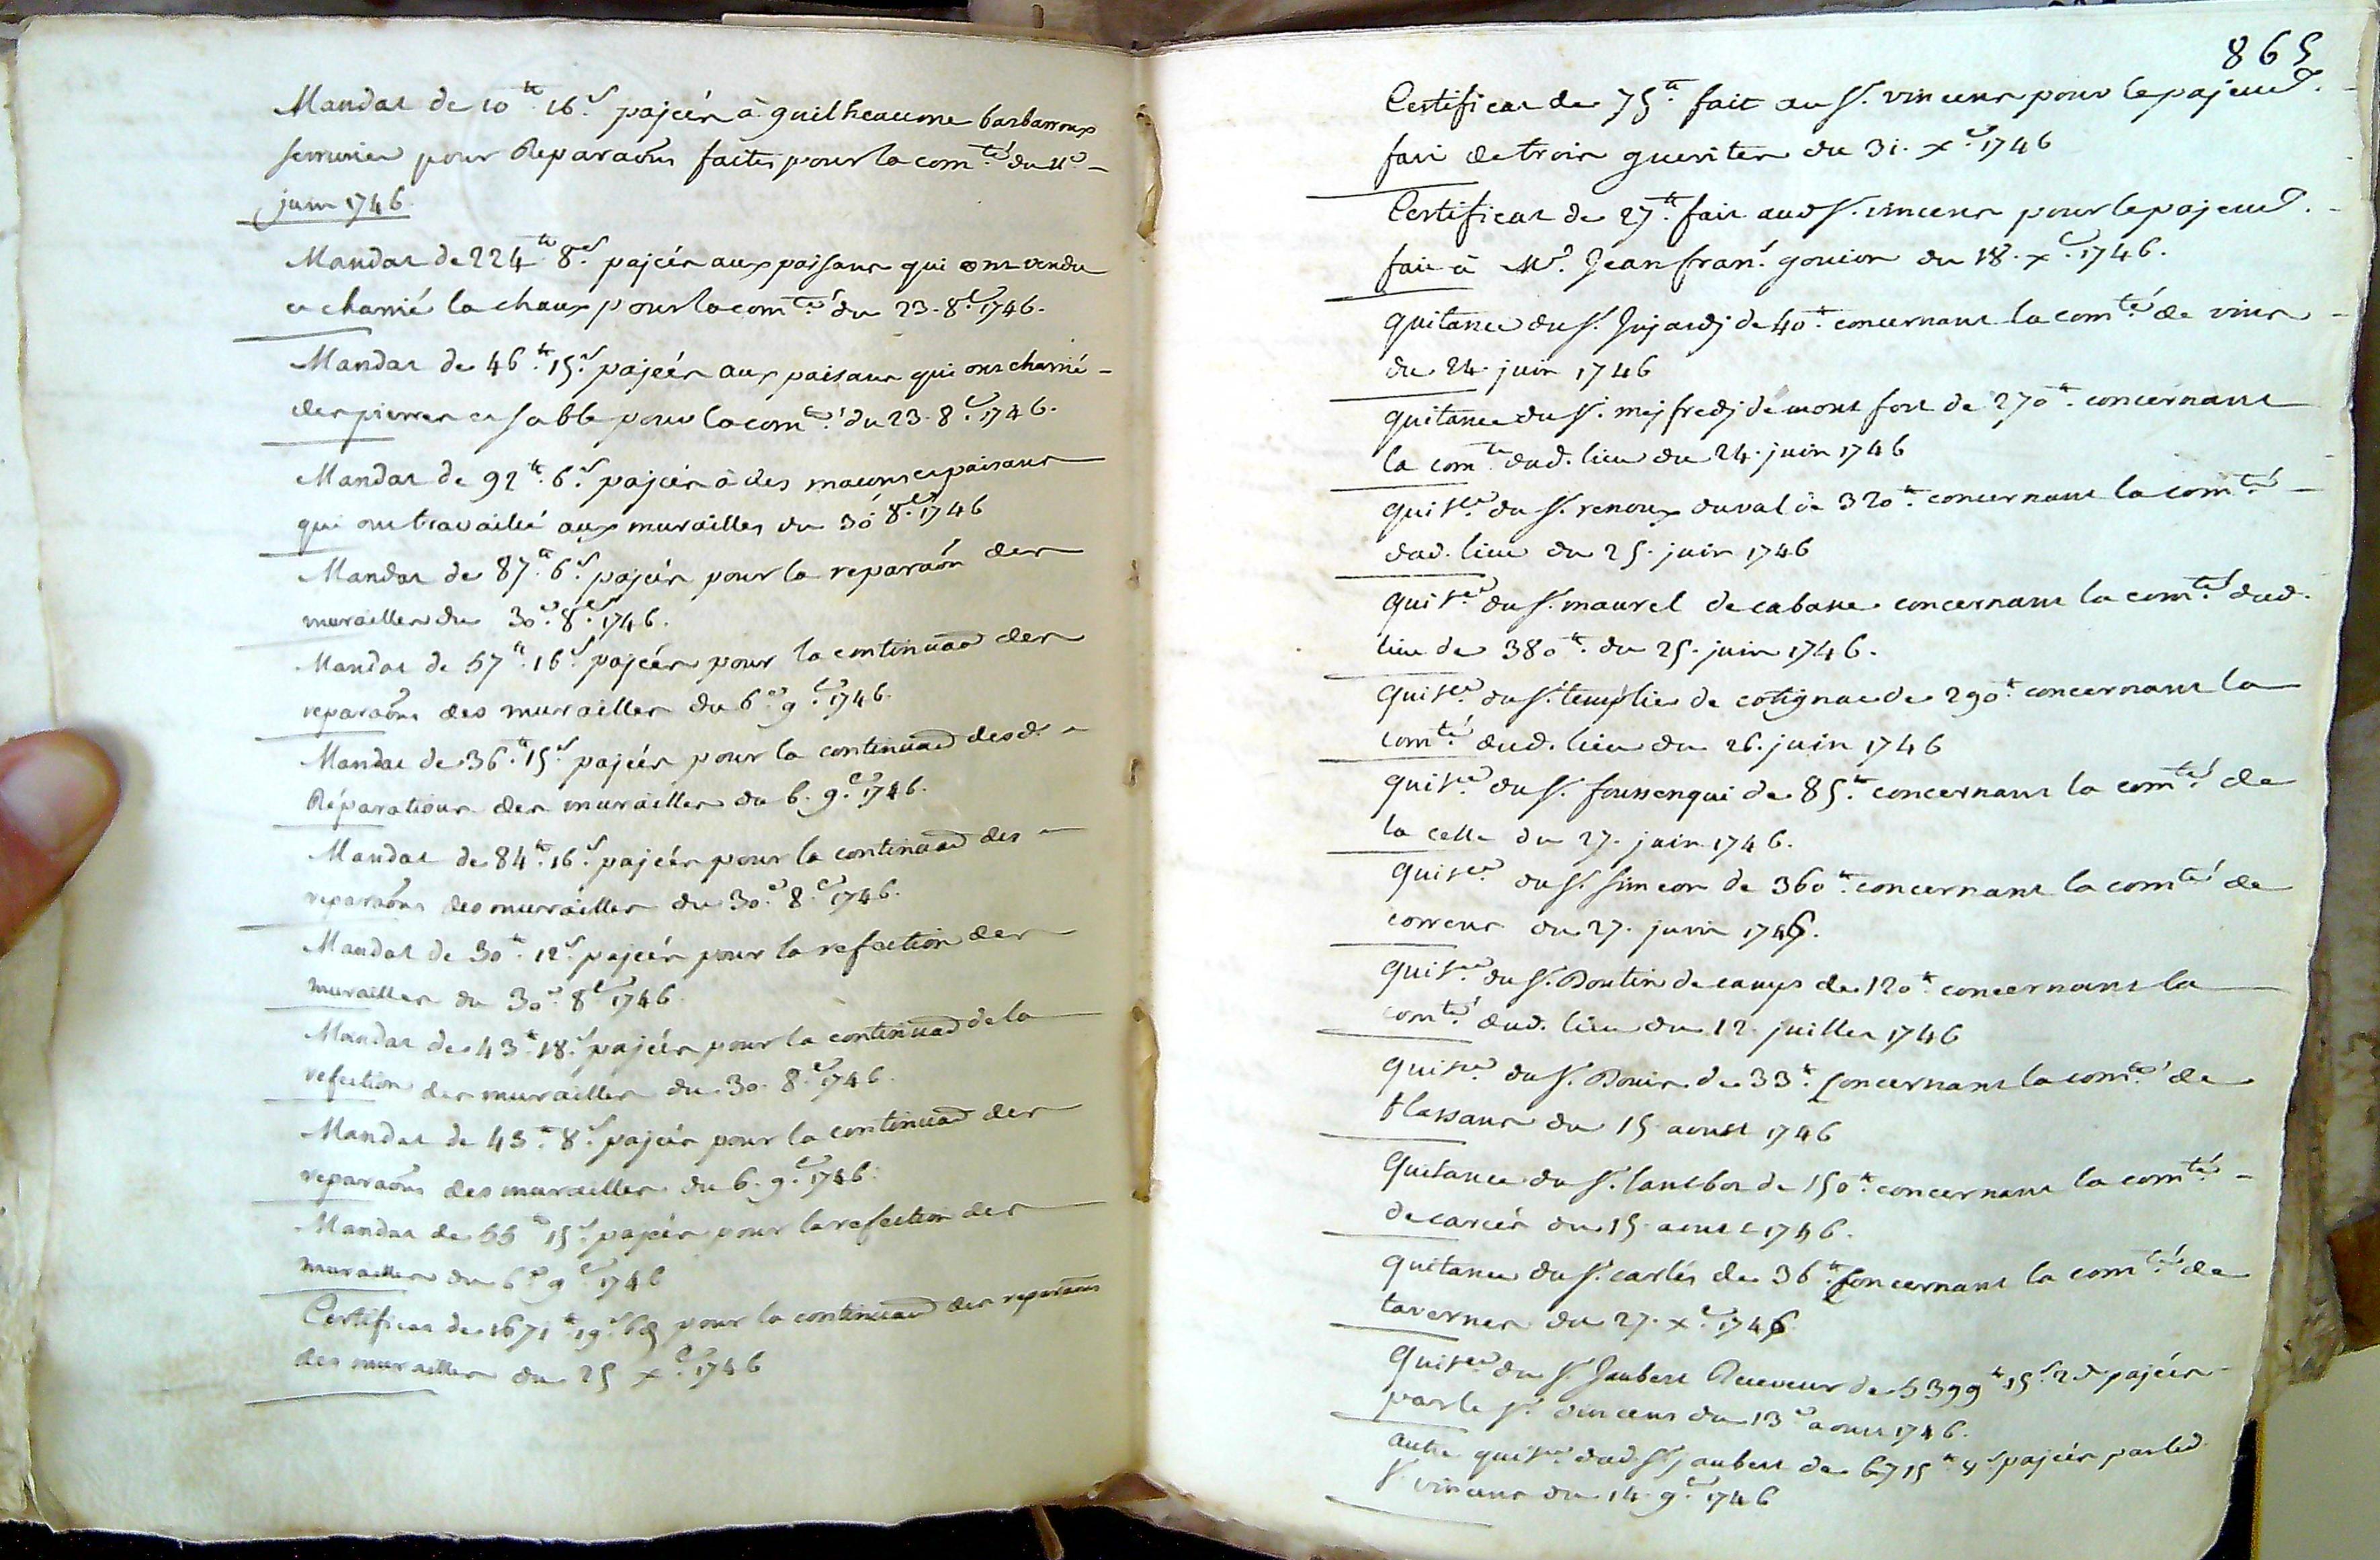 Mandat de 10 tt 16 s payées à guilheaume barbarroux
serrurier pour Reparaõns faites pour la com.té du
juin 1746
Mandat de 224 tt 8 s payées aux paisans qui ont vendu
et charrié la chaux pour la com.té du 23. 8.e 1746.
Mandat de 46 tt 15 s payées aux paisans qui ont charrié
des pierres et sable pour la com.té du 23. 8.e 1746.
Mandat de 92 tt 6 s payées à des maçons et paisans
qui ont travaillé aux murailles du 30 8.e 1746
Mandat de 87 tt 6 s payées pour la reparaõn des
murailles du 30.e 8.e 1746.
Mandat de 57 tt 16 s payées pour la continuaõ des
reparaõns des murailles du 6.e 9.e 1746.
Mandat de 36 tt 15 s payées pour la continuaõ desd.
Réparations des murailles du 6. 9.e 1746.
Mandat de 84 tt 16 s payées pour la continuaõ des
reparaõns des murailles du 30.e 8.e 1746.
Mandat de 30 tt 12 s payées pour la refection des
murailles du 30.e 8.e 1746
Mandat de 43 tt 18 s payées pour la continuaõ de la
refection des murailles du 30. 8.e 1746.
Mandat de 43 tt 8 s payées pour la continuaõ des
reparaõns des murailles du 6. 9.e 1746.
Mandat de 55 tt 15 s payées pour la refection des
murailles du 6.e 9.e 1746
Certificat de 1671 tt 19 s 6 d pour la continuaõ des reparaõns
des murailles du 25 x.e 1746
865
Certificat de 75 tt fait au s.r vincens pour le payem.t
fait de trois guerites du 31. x.e 1746
Certificat de 27 tt fait aud s.r vincens pour le payem.t
fait à M.r Jean fran.s gouion du 18. x.e 1746.
quitance du s.r de 40 tt concernant la com.té de vins
du 24. juin 1746
quitance du s.r meyfredy de mont fort de 270 tt concernant
la com.té dud. lieu du 24. juin 1746
quit.ce du s.r renoux du val de 320 tt concernant la com.té
dud. lieu du 25. juin 1746
quit.ce du s.r maurel de cabane concernant la com.té dud.
lieu de 380 tt du 25. juin 1746.
quit.ce du s.r templier de cotignac de 290 tt concernant la
com.té dud. lieu du 26. juin 1746
quit.ce du s.r foussenqui de 85 tt concernant la com.té de
la celle du 27. juin 1746.
quit.ce du s.r simeon de 360 tt concernant la com.té de
correns du 27. juin 1746.
quit.ce du s.r Boutin de camps de 120 tt concernant la
com.té dud. lieu du 12. juillet 1746
quit.ce du s.r Bouis de 33 tt concernant la com.té de
flassans du 15 aoust 1746
Quitance du s.r de 150 tt concernant la com.té
de carcés du 15 aoust 1746.
quitance du s.r carles de 36 tt concernant la com.té de
tavernes du 27. x.e 1746
quit.ce du s.r Jaubert Receveur de 5399 tt 15 s 2 d payées
par le s.r vincens du 13.e aoust 1746.
autre quit.ce dud s.r jaubert de 6715 tt 4 s payées par led
s.r vincens du 14. 9.e 1746